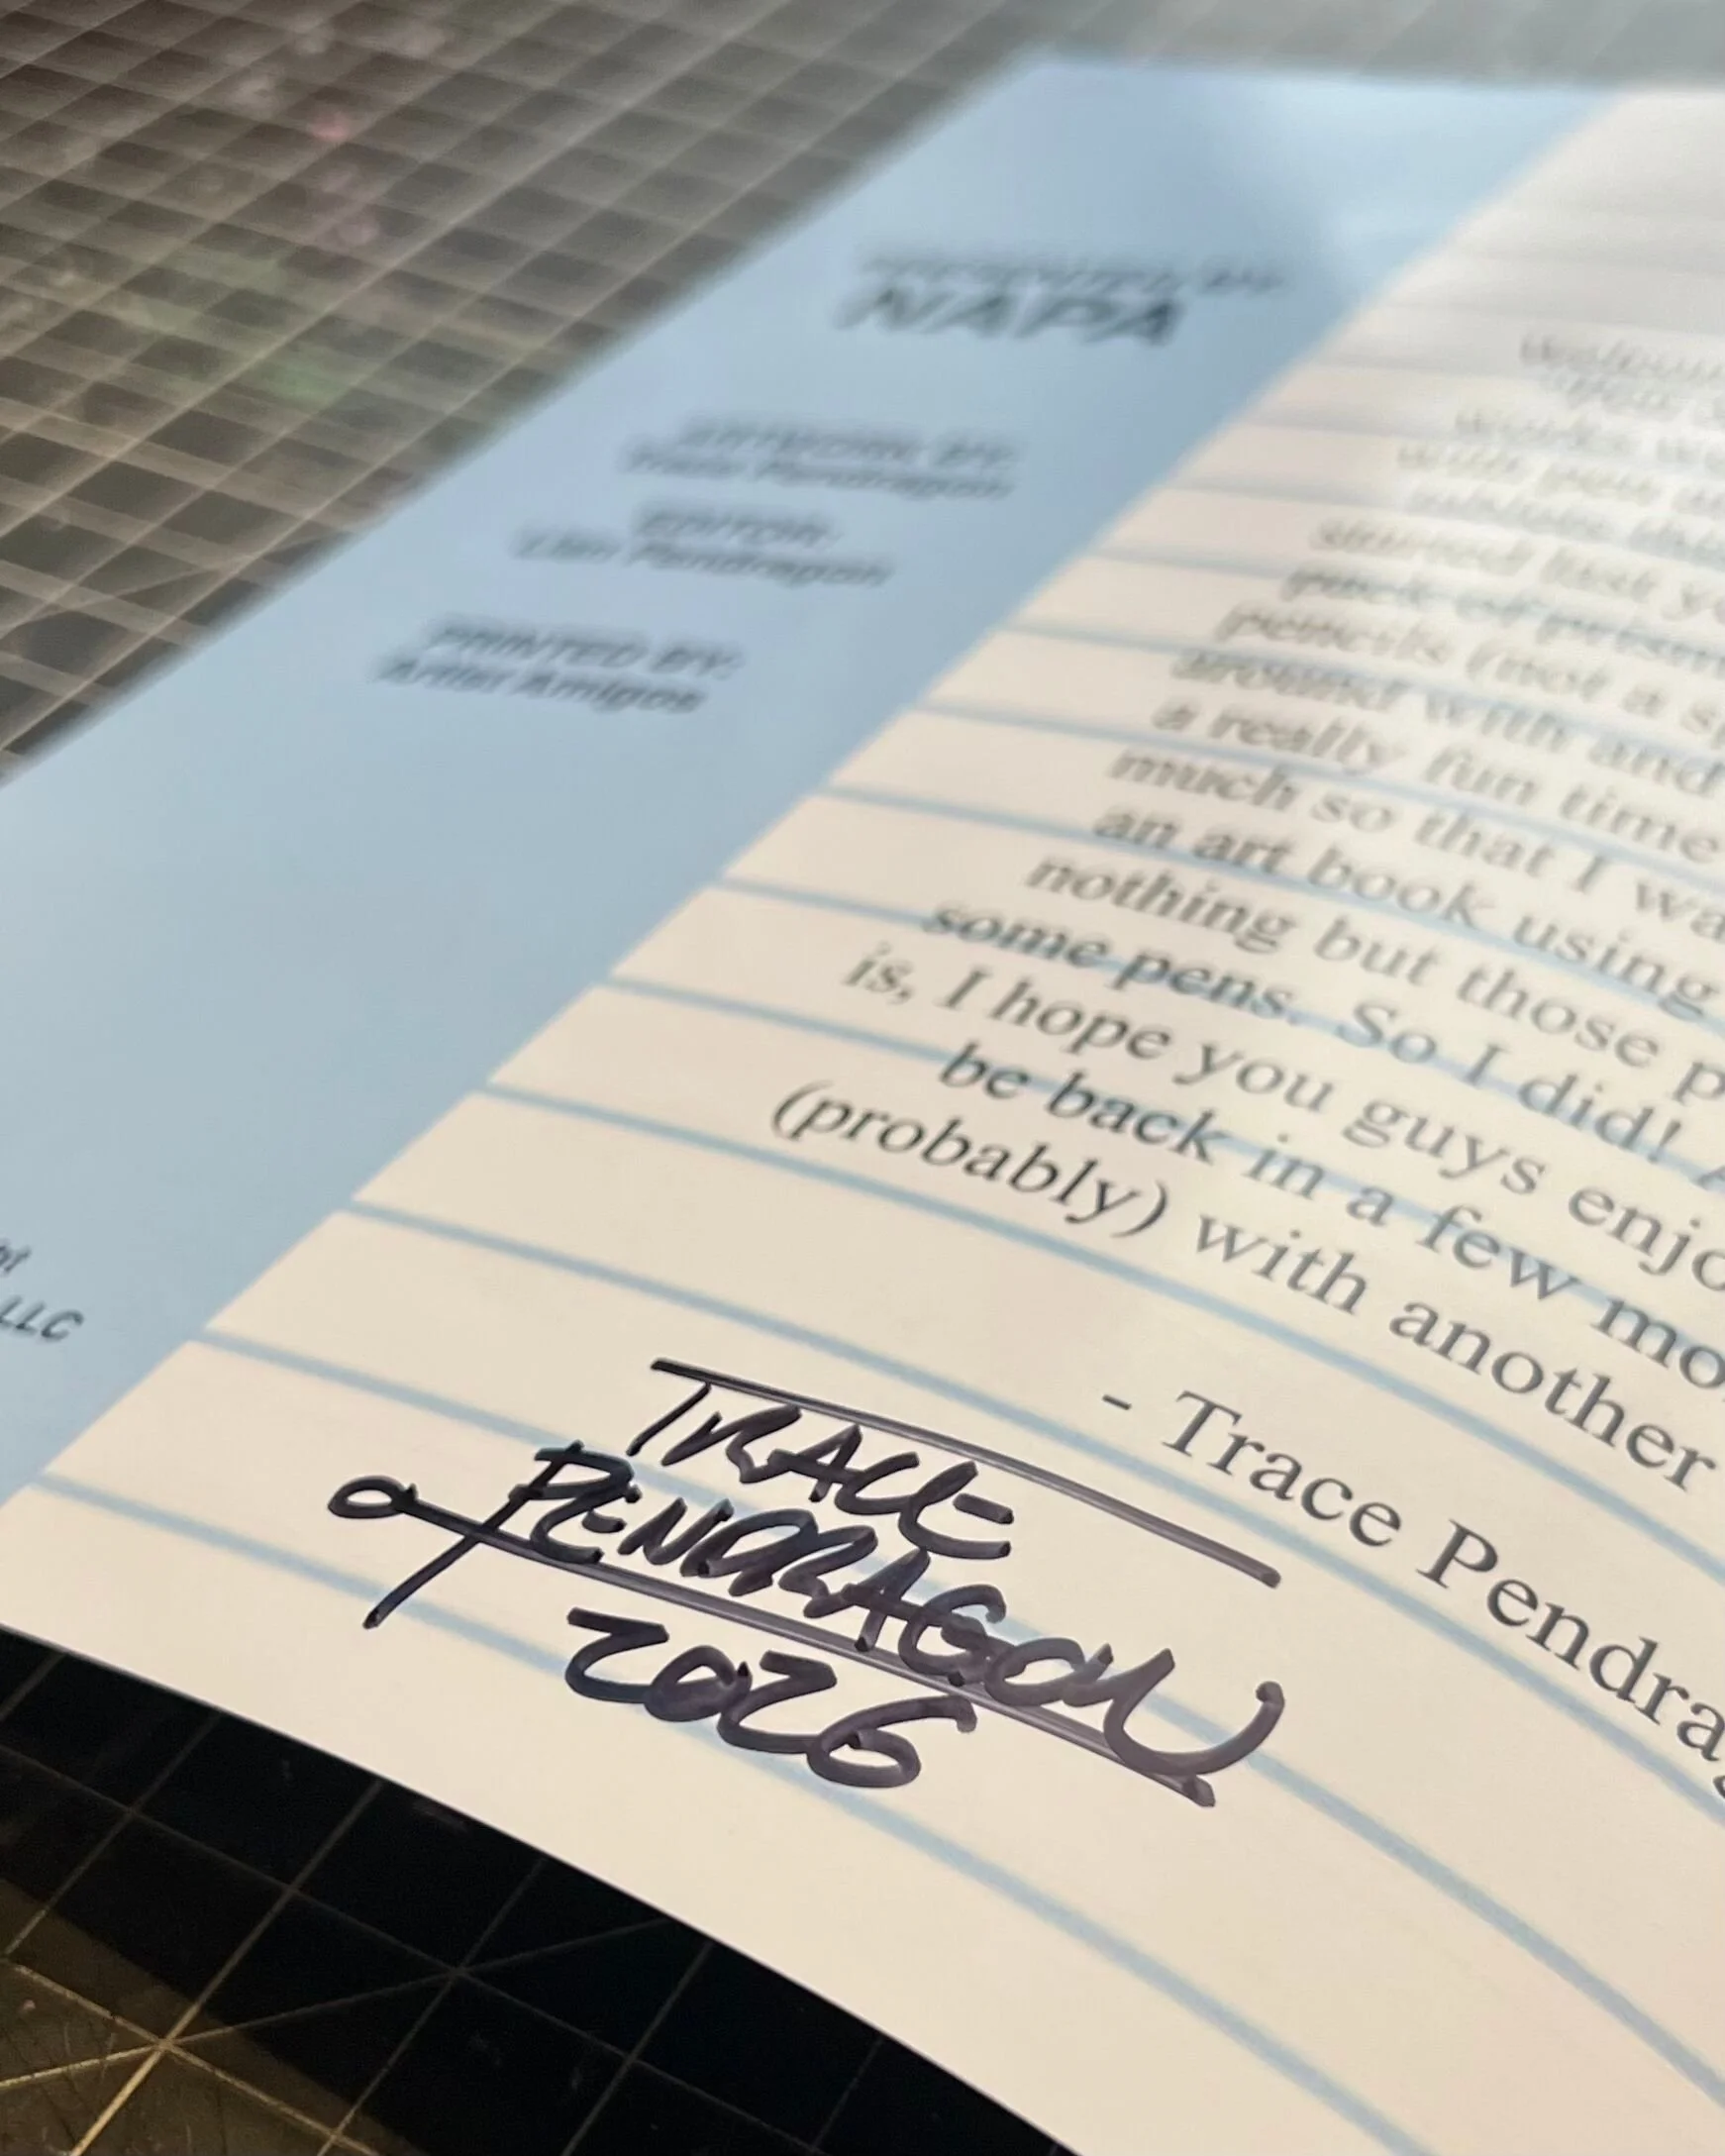 NAPA
ARTWORK BY:
Trace Pendragon
EDITOR:
Pendragon
PRINTED BY:
Artist Amigos
LLC
started last
pack of
pencils (not a
around with and
a really fun time
much so that I
an art book using
nothing but those
some pens. So I did!
is, I hope you guys
be back in a few
(probably) with another
- Trace
TRACE
PENDRAGON
2026